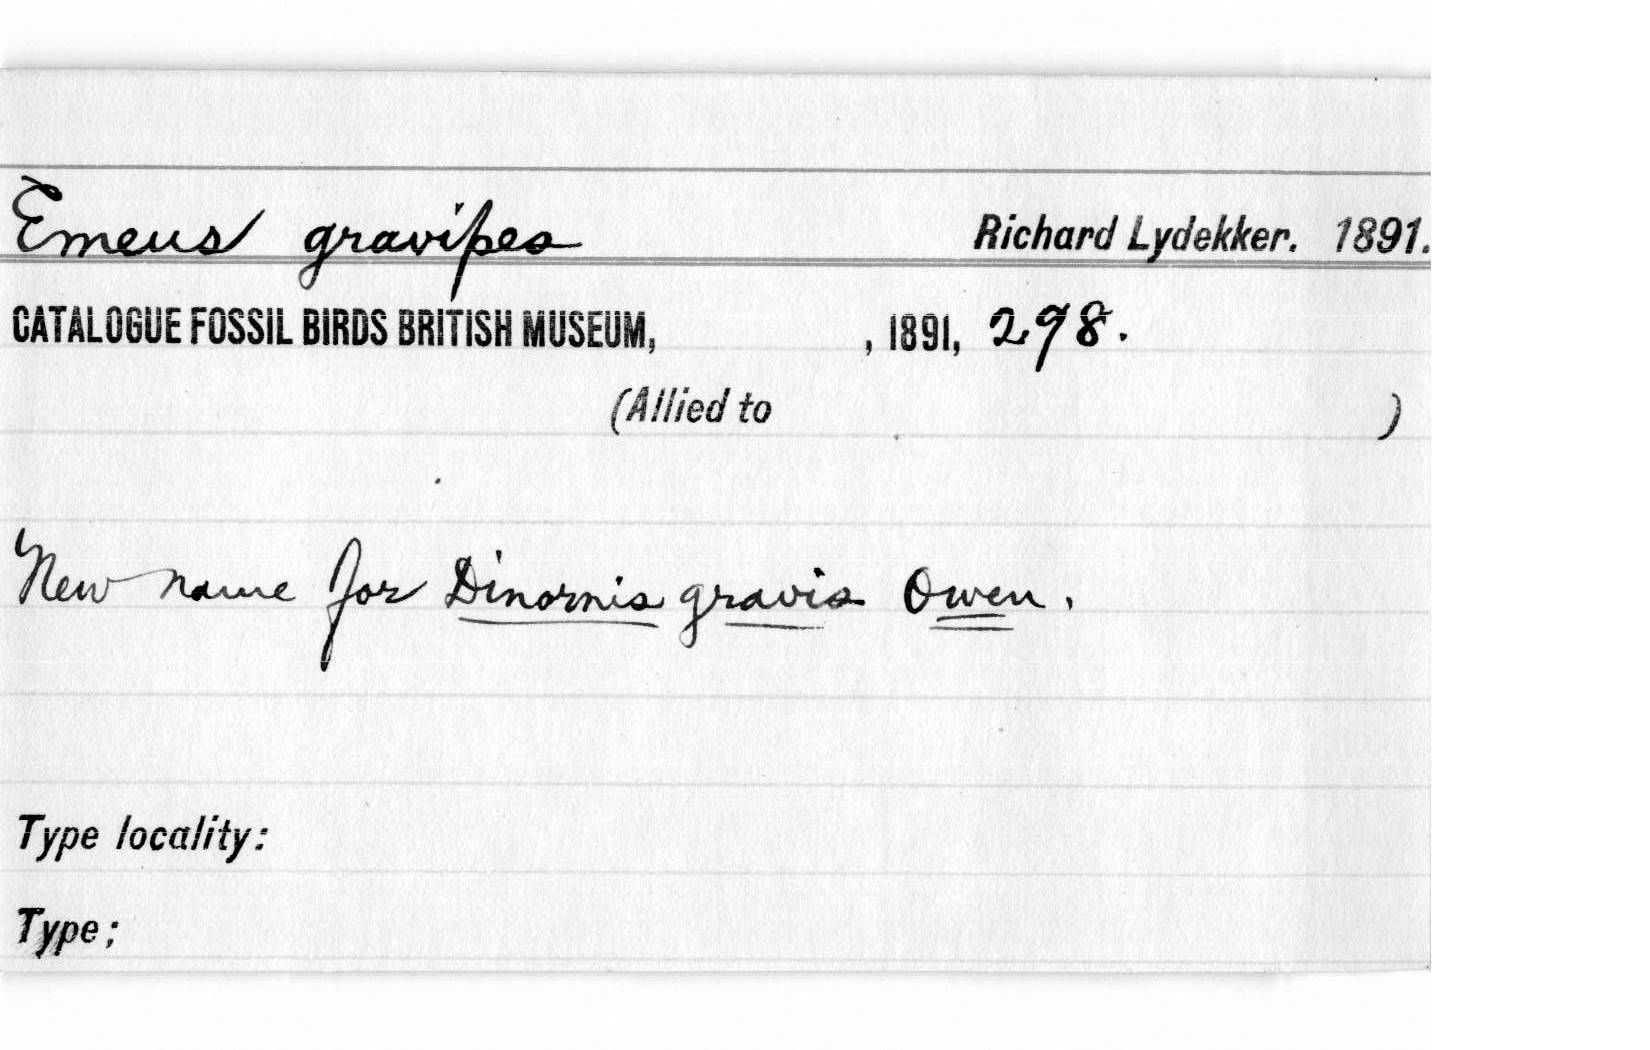 Emeus gravipes Richard Lydekker. 1891.
CATALOGUE FOSSIL BIRDS BRITISH MUSEUM, , 1891, 298.
(Allied to )
New name for Dinornis gravis Owen.
Type locality:
Type;